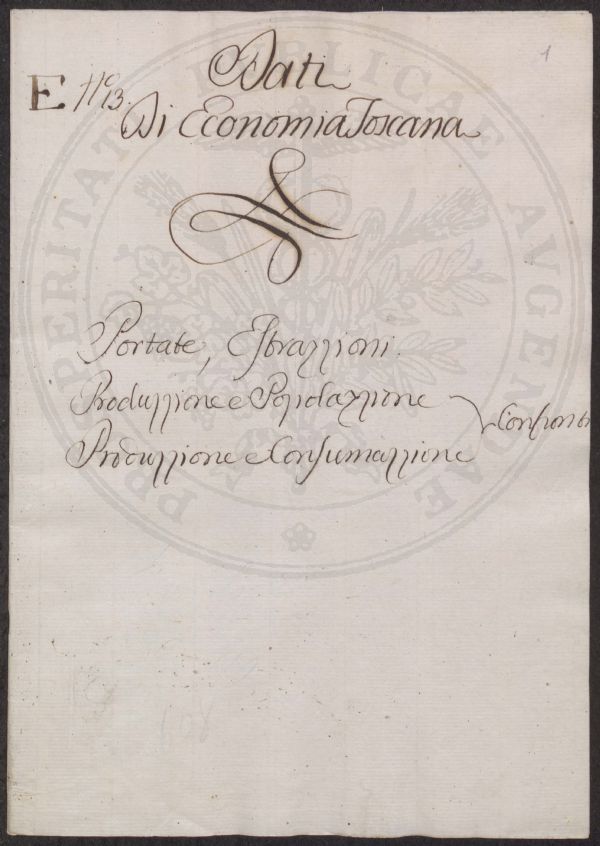 1
E n.º 13.
Dati
Di Economia Toscana
Portate, Estrazzioni.
Produzzione e Popolazzione
Produzzione e Consumazzione
Confronti
PROSPERITATI PUBLICAE AUGENDAE